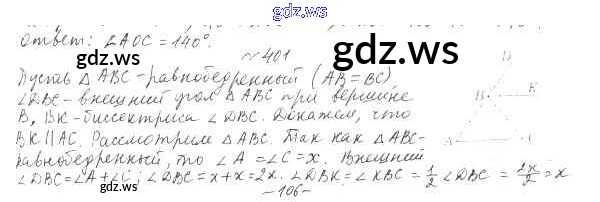 gdz.ws
Ответ: ∠AOC = 140°.
№ 401
gdz.ws
Пусть △ABC - равнобедренный (AB = BC)
∠DBC - внешний угол △ABC при вершине
B, BK - биссектриса ∠DBC. Докажем, что
BK ∥ AC. Рассмотрим △ABC. Так как △ABC -
равнобедренный, то ∠A = ∠C = x. Внешний
∠DBC = ∠A + ∠C; ∠DBC = x + x = 2x. ∠DBK = ∠KBC = 1/2 ∠DBC = 2x/2 = x
D
B
K
A
- 106 -
gdz.ws